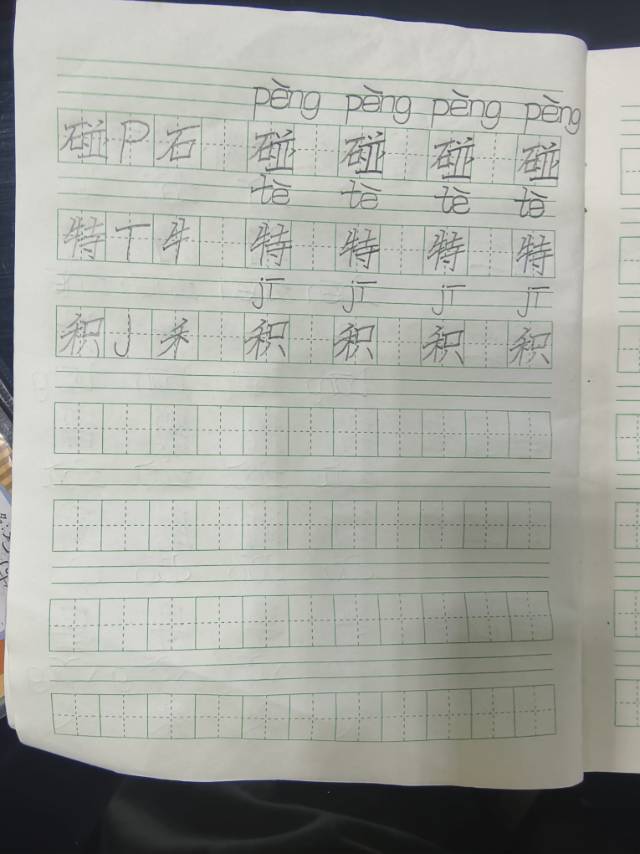 pèng pèng pèng pèng
碰 P 石 碰 碰 碰 碰
tè tè tè tè
特 T 牛 特 特 特 特
jī jī jī jī
积 J 禾 积 积 积 积